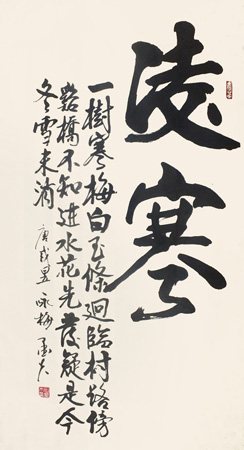 淩寒
一樹寒梅白玉條迴臨村路傍
谿橋不知近水花先發疑是今
冬雪未消
詠梅